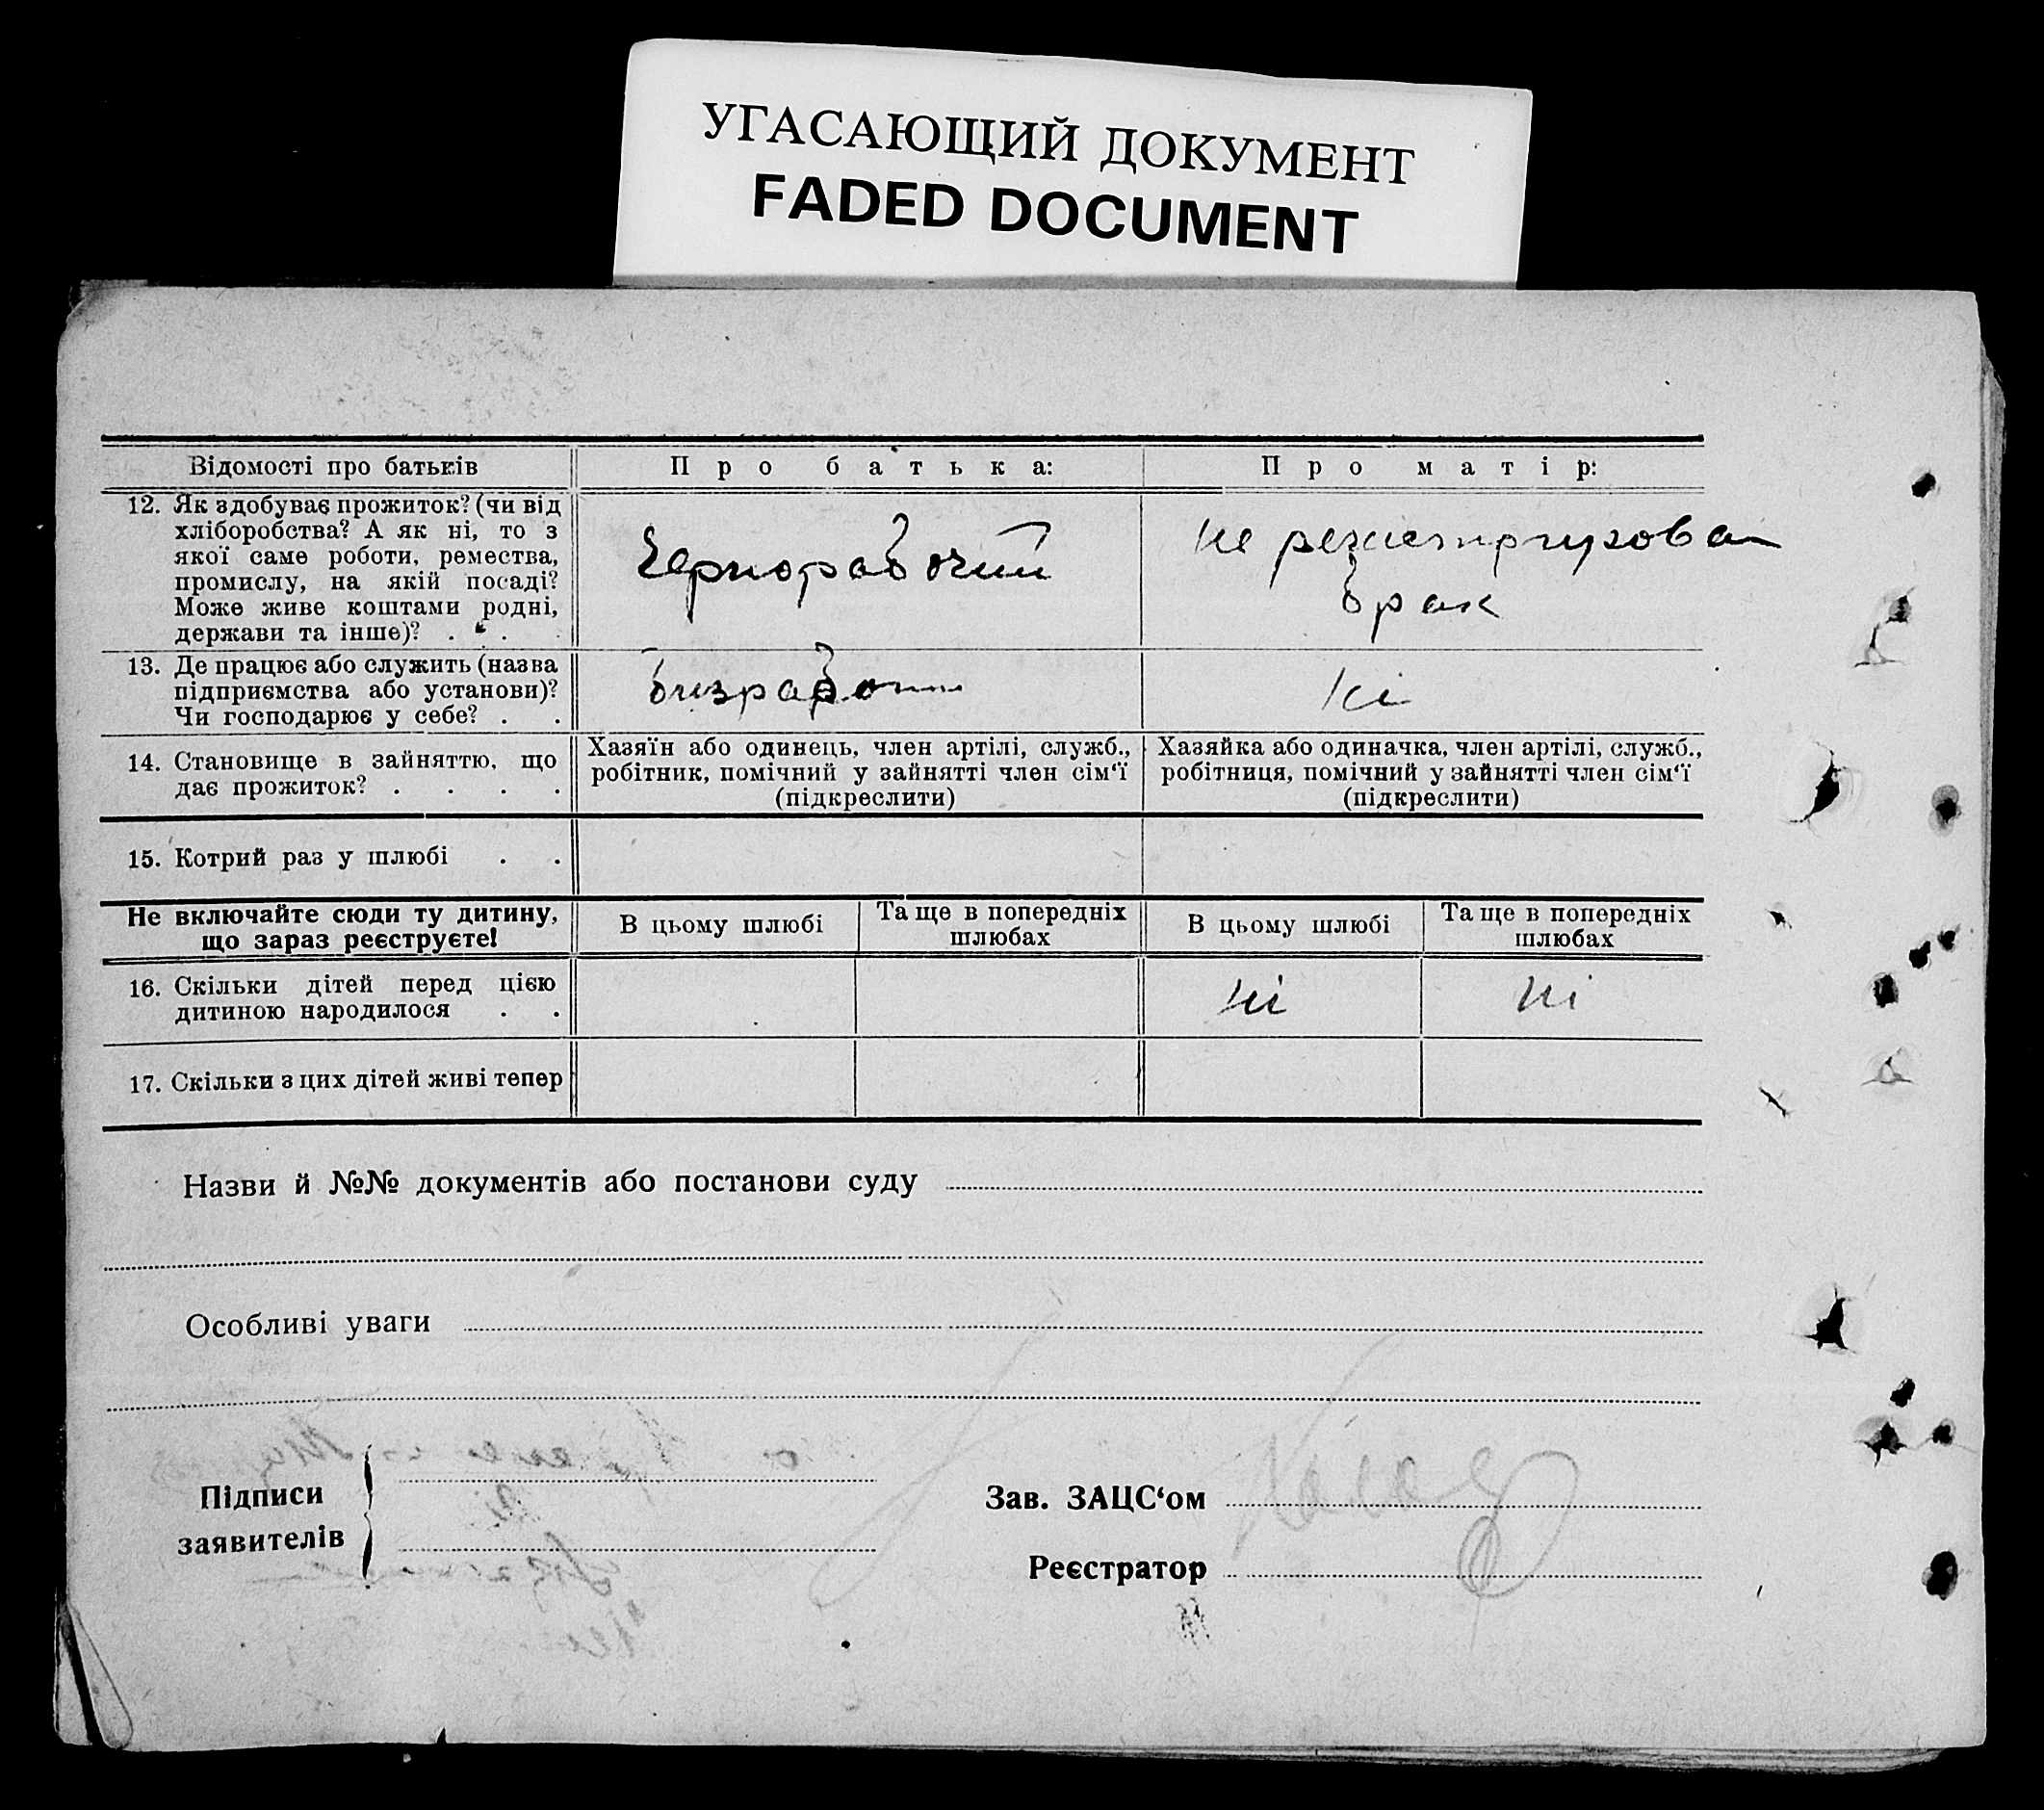 УГАСАЮЩИЙ ДОКУМЕНТ
FADED DOCUMENT
Відомості про батьків
Про батька:
Про матір:
12. Як здобуває прожиток? (чи від
хліборобства? А як ні, то з
якої саме роботи, ремества,
промислу, на якій посаді?
Може живе коштами родні,
держави та інше)? . . .
Чернорабочий
не регистрирован
брак
13. Де працює або служить (назва
підприємства або установи)?
Чи господарює у себе? . .
ні
14. Становище в зайняттю, що
дає прожиток? . . . .
Хазяїн або одинець, член артілі, служб.,
робітник, помічний у зайнятті член сім‘ї
(підкреслити)
Хазяйка або одиначка, член артілі, служб.,
робітниця, помічний у зайнятті член сім‘ї
(підкреслити)
15. Котрий раз у шлюбі . .
Не включайте сюди ту дитину,
що зараз реєструєте!
В цьому шлюбі
Та ще в попередніх
шлюбах
В цьому шлюбі
Та ще в попередніх
шлюбах
16. Скільки дітей перед цією
дитиною народилося . .
ні
ні
17. Скільки з цих дітей живі тепер
Назви й №№ документів або постанови суду
Особливі уваги
Підписи
заявителів
Зав. ЗАЦС‘ом
Реєстратор